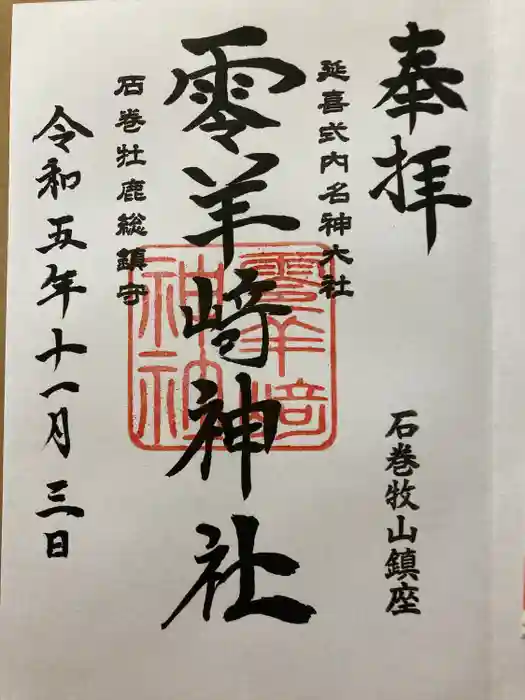 奉拝
石巻牧山鎮座
延喜式内名神大社
零羊崎神社
石巻牡鹿総鎮守
令和五年十一月三日
零羊崎
神社